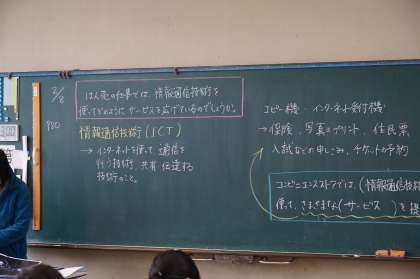 2/8
はん売の仕事では、情報通信技術を
使ってどのように サービスを広げているのでしょうか。
P80
情報通信技術 (ICT)
→ インターネットを使って 通信を
行う技術、共有・伝達する
技術のこと。
コピー機・インターネット受付機
→ 保険、写真のプリント、住民票
入試などの申しこみ、チケットの予約
コンビニエンスストアでは、(情報通信技
使って、さまざまな (サービス ) を提